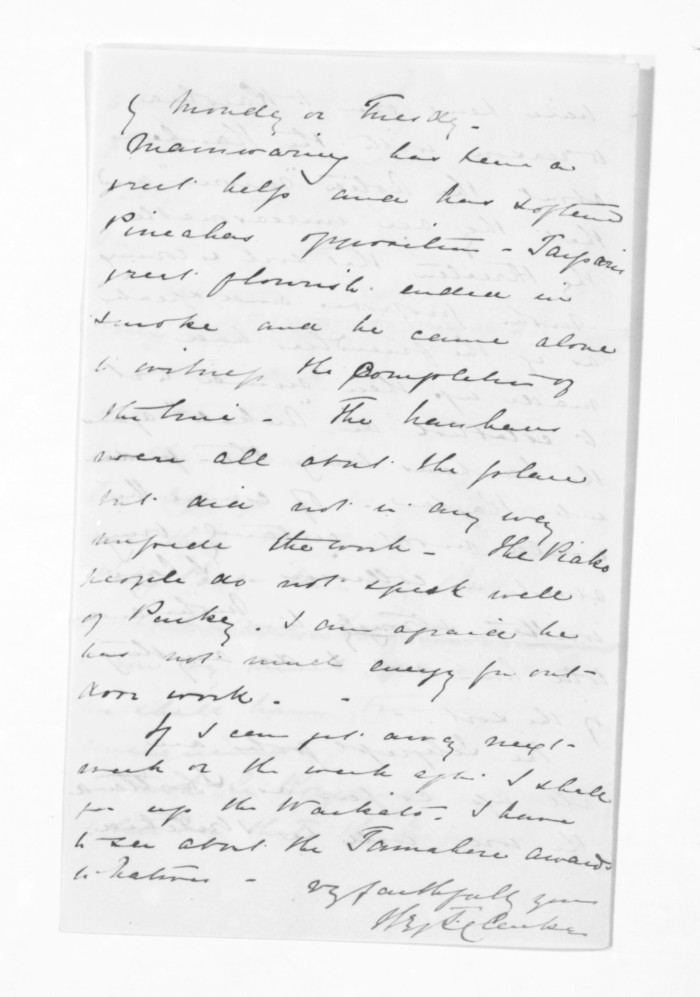 by Monday or Tuesday.
Mainwaring has been a
great help and has softened
Pineahas opposition - Taipari's
great flourish ended in
smoke and he came alone
to witness the completion of
the line - The hauhaus
were all about the place
but did not in any way
impede the work - The Piako
people do not speak well
of Puckey. I am afraid he
has not much energy for out-
door work - -
If I can get away next
week or the week after I shall
go up the Waikato. I have
to see about the Tamahere awards
to natives -
vy faithfully yours
H T Clarke